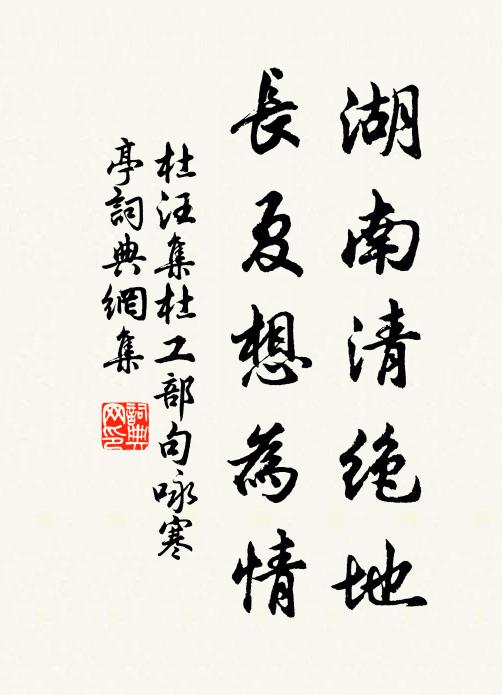 湖南清絶地
長夏想為情
杜汪集杜工部句咏寒
亭詞典網集
詞典网印